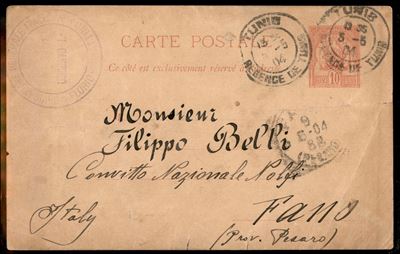 CARTE POSTALE
Ce côté est exclusivement réservé
TUNIS
04
REGENCE DE TUNIS
TUNIS
5-5
04
REGENCE DE TUNIS
10
Monsieur
Filippo Belli
Convitto Nazionale Nolfi
Fano
(Prov. Pesaro)
Italy
9
5-04